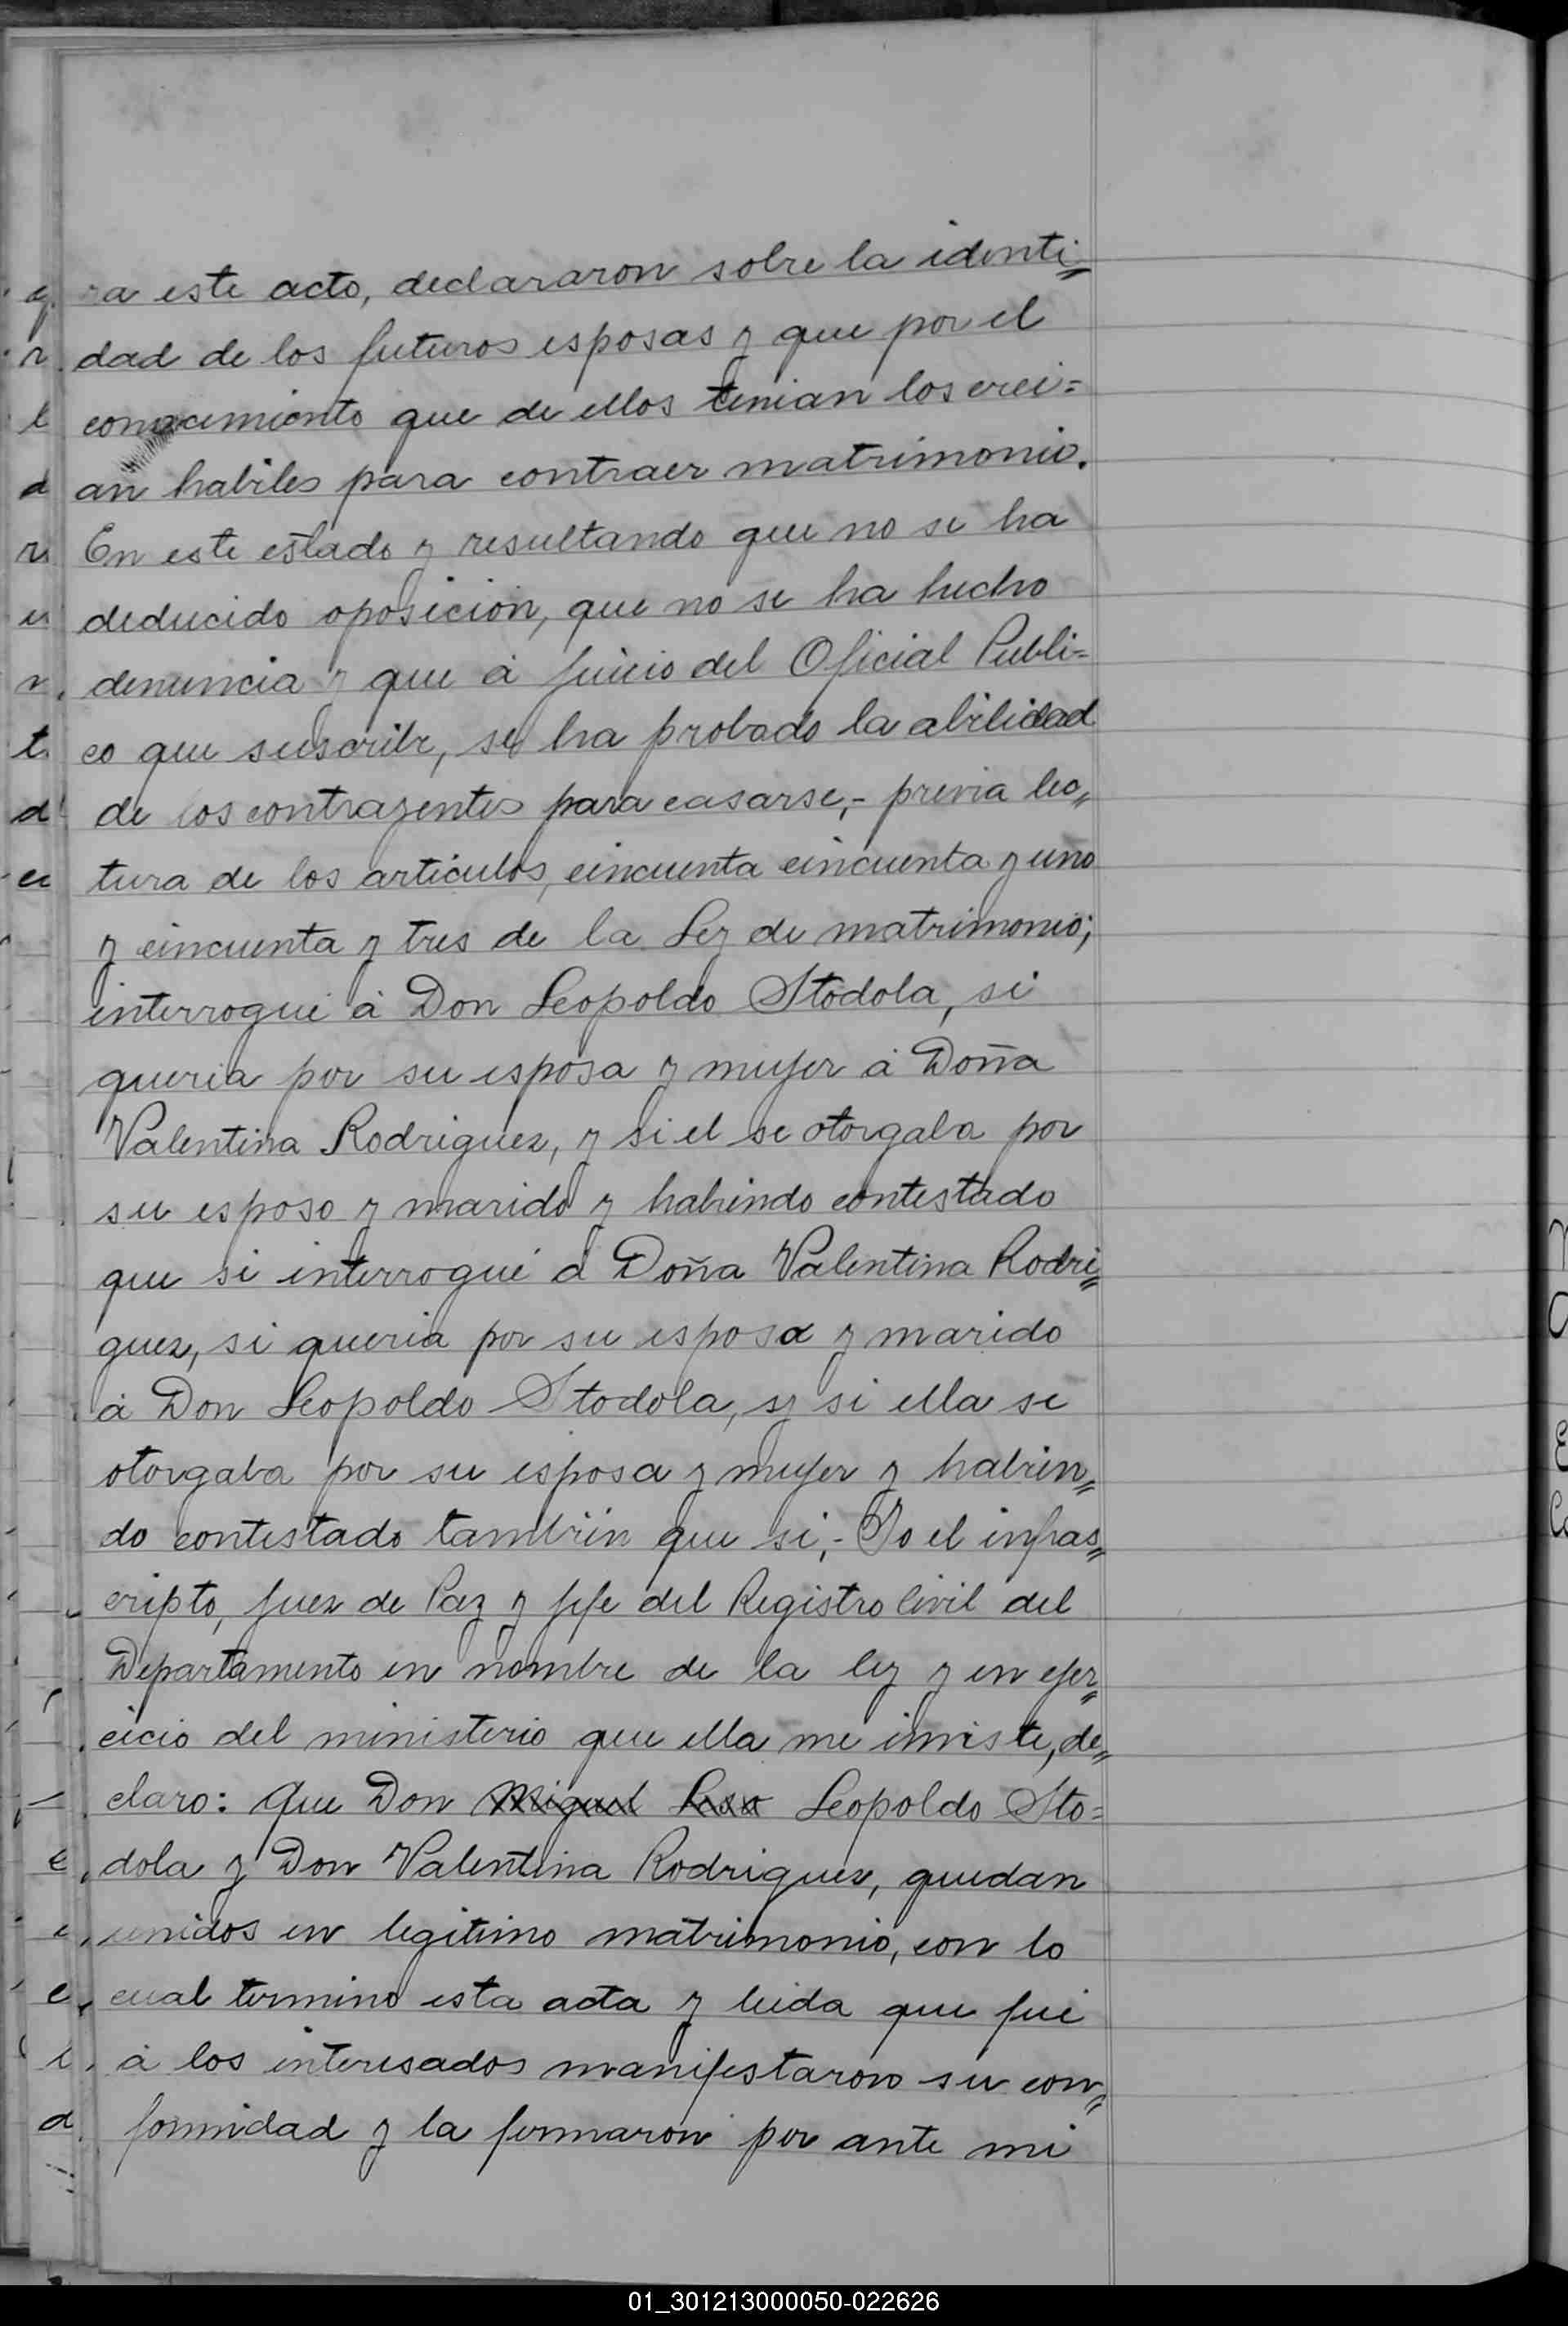 ra este acto, declararon sobre la identi=
dad de los futuros esposas y que por el
conocimiento que de ellos tenian los crei=
an habiles para contraer matrimonio.
En este estado y resultando que no se ha
deducido oposición, que no se ha hecho
denuncia y que á juicio del Oficial Publi=
co que suscribe, se ha probado la abilidad
de los contrayentes para casarse,- previa lec=
tura de los articulos, cincuenta cincuenta y uno
y cincuenta y tres de la Ley de matrimonio;
interrogué á Don Leopoldo Stodola, si
queria por su esposa y mujer á Doña
Valentina Rodriguez, y si el se otorgaba por
su esposo y marido y habiendo contestado
que si interrogué á Doña Valentina Rodri=
guez, si queria por su esposo y marido
á Don Leopoldo Stodola, y si ella se
otorgaba por su esposa y mujer y habien=
do contestado también que si,- Yo el infras=
cripto, Juez de Paz y Jefe del Registro Civil del
Departamento en nombre de la ley y en ejer=
cicio del ministerio que ella me inviste, de=
claro: Que Don Miguel Leopoldo Sto=
dola y Don Valentina Rodriguez, quedan
unidos en legitimo matrimonio, con lo
cual termino esta acta y leida que fué
á los interesados manifestaron su con=
formidad y la firmaron por ante mi
01_301213000050-022626